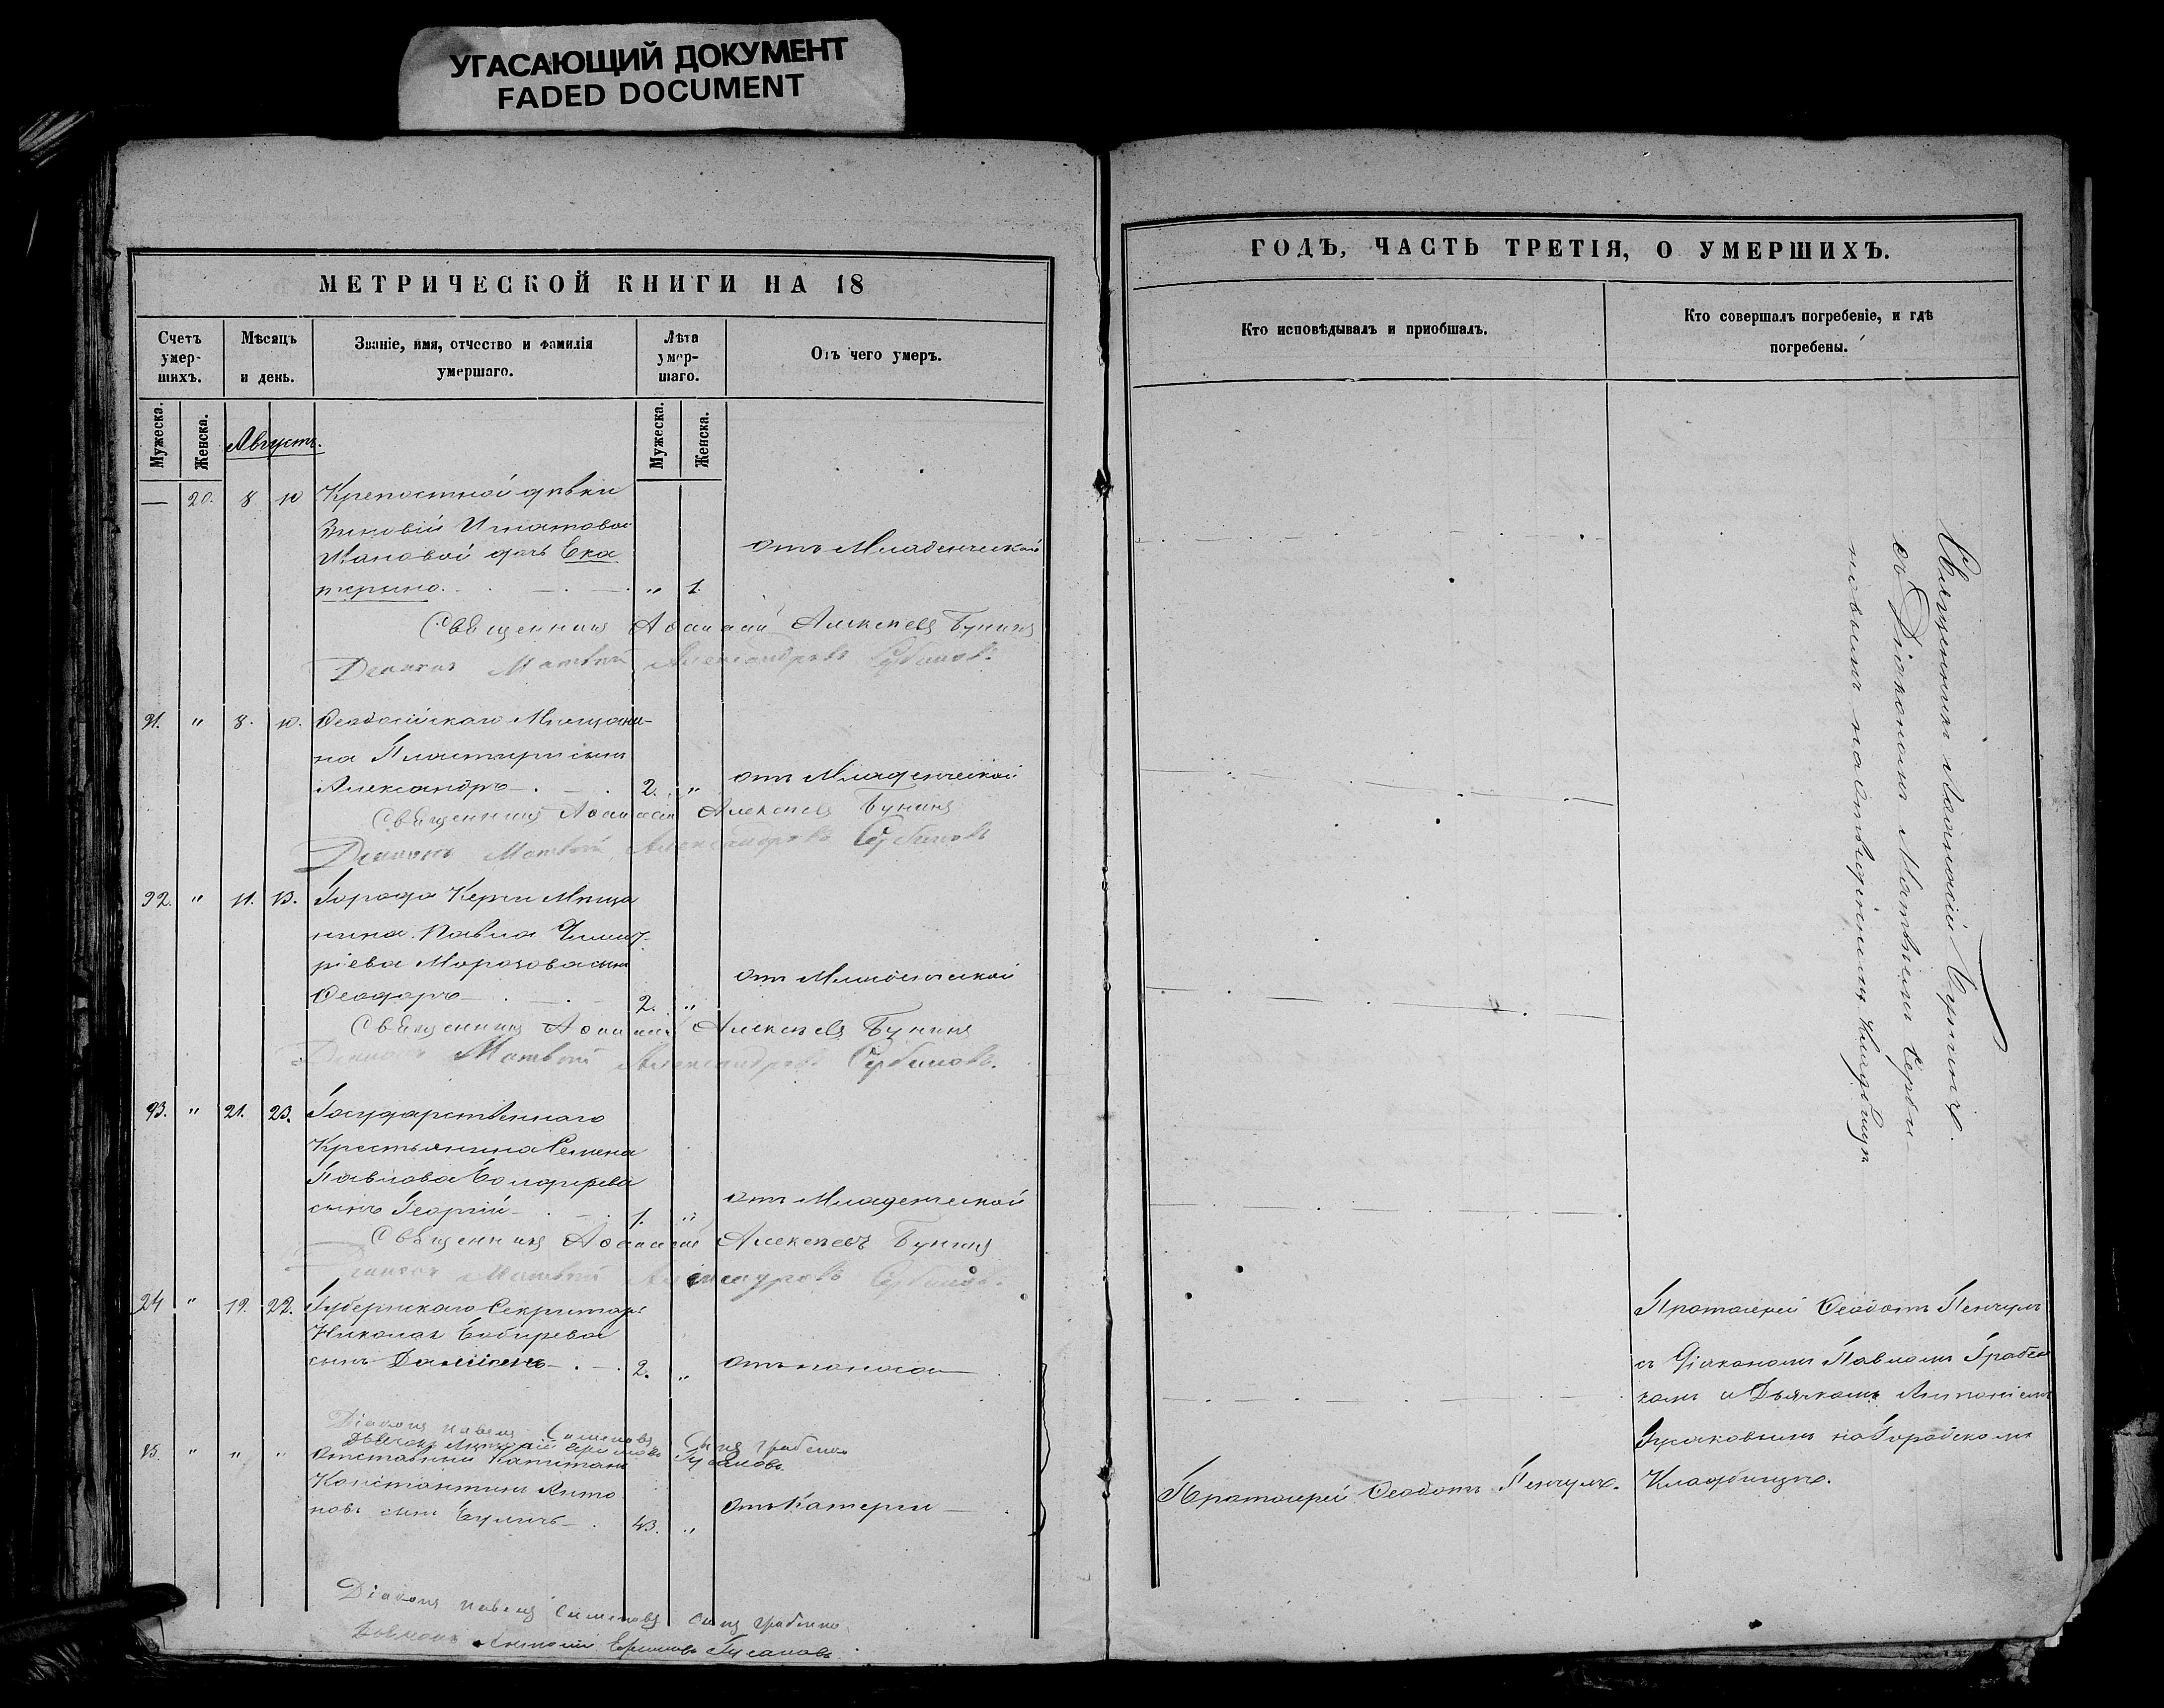 УГАСАЮЩИЙ ДОКУМЕНТ
FADED DOCUMENT
МЕТРИЧЕСКОЙ КНИГИ НА 18
Счетъ умер-шихъ.
Мѣсяцъ и день.
Званіе, имя, отчество и фамилія умершаго.
Лѣта умер-шаго.
Отъ чего умеръ.
Мужеска.
Женска.
Мужеска.
Женска.
Августъ.
— 20. 8 10 Крепостной дѣвки
Зиновіи Игнатовой
Ивановой дочь Ека
терина. „ 1. отъ Младенческой
Священникъ Афанасій Алексѣевъ Бунинъ
Діаконъ Матвей Александровъ Сербиновъ.
21. „ 8. 10. Феодосійскаго Мѣщани-
на сынъ
Александръ 2. „ отъ Младенческой
Священникъ Афанасій Алексѣевъ Бунинъ
Діаконъ Матвей Александровъ Сербиновъ
22. „ 11. 13. Города Керчи Мѣща
нина Павла
Морозова сынъ
Феодоръ 2. „ отъ Младенческой
Священникъ Афанасій Алексѣевъ Бунинъ
Діаконъ Матвей Александровъ Сербиновъ.
23. „ 21. 23. Государственнаго
Крестьянина Семена
Павлова Болдирева
сынъ Георгій 1. „ отъ Младенческой
Священникъ Афанасій Алексѣевъ Бунинъ
Діаконъ Матвей Александровъ Сербиновъ.
24 „ 19. 22. Губернскаго Секритаря
Николая Бобирева
сынъ 2. „ отъ поноса
Діаконъ Павелъ Симеоновъ сынъ Грабенко
Дьячокъ Антоній Гусаковъ
25. „ „ „ Отставный Капитанъ
Константинъ Анто
новъ сынъ 43. „
Діаконъ Павелъ Симеоновъ сынъ Грабенко
Дьячокъ Антоній Гусаковъ
ГОДЪ, ЧАСТЬ ТРЕТІЯ, О УМЕРШИХЪ.
Кто исповѣдывалъ и пріобщалъ.
Кто совершалъ погребеніе, и гдѣ погребены.
Священникъ Афанасій Бунинъ.
съ Діакономъ Матвѣемъ Серби
новымъ на Кладбищѣ
Протоіерей Феодотъ
съ Діакономъ Павломъ Грабен
комъ и Дьячкомъ Антоніемъ
Гусаковымъ на Городскомъ
Кладбищѣ.
Протоіерей Феодотъ